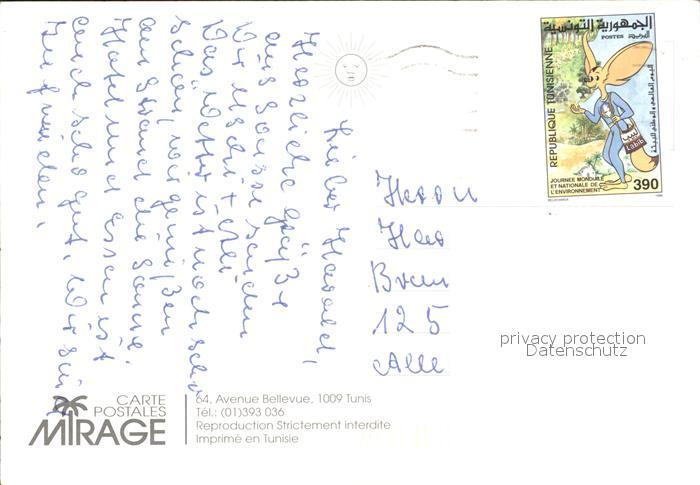 Lieber Harald,
Herzliche Grüße
aus Sousse senden
Das Wetter ist noch sehr
schön, wir genießen
am Strand die Sonne.
Hotel und Essen ist
auch sehr gut. Wir sind
zufrieden.
Herrn
125
الجمهورية التونسية
POSTES
REPUBLIQUE TUNISIENNE
Labib
JOURNEE MONDIALE
ET NATIONALE DE
L'ENVIRONNEMENT
390
privacy protection
Datenschutz
CARTE
POSTALES
MIRAGE
64, Avenue Bellevue, 1009 Tunis
Tél.: (01)393 036
Reproduction Strictement interdite
Imprimé en Tunisie